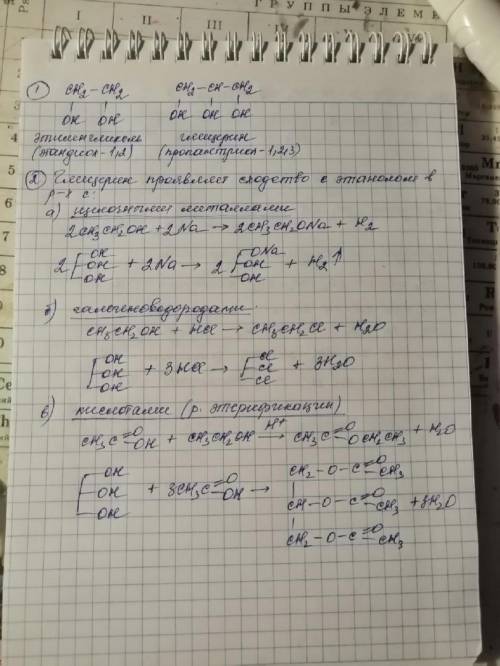 ГРУППЫ ЭЛЕМЕ
I II III
① CH₂–CH₂ CH₂–CH–CH₂
OH OH OH OH OH
этиленгликоль глицерин
(этандиол-1,2) (пропантриол-1,2,3)
② Глицерин проявляет сходство с этанолом в
р-я с:
а) щелочными металлами
2CH₃CH₂OH + 2Na → 2CH₃CH₂ONa + H₂
2[OH OH OH + 2Na → 2[ONa OH OH + H₂↑
б) галогеноводородами:
CH₃CH₂OH + HCl → CH₃CH₂Cl + H₂O
[OH OH OH + 3HCl → [Cl Cl Cl + 3H₂O
в) кислотами (р. этерификации)
CH₃C=O OH + CH₃CH₂OH H⁺→ CH₃C=O OCH₂CH₃ + H₂O
[OH OH OH + 3CH₃C=O OH →
CH₂–O–C=O CH₃
CH–O–C=O CH₃ + 3H₂O
CH₂–O–C=O CH₃